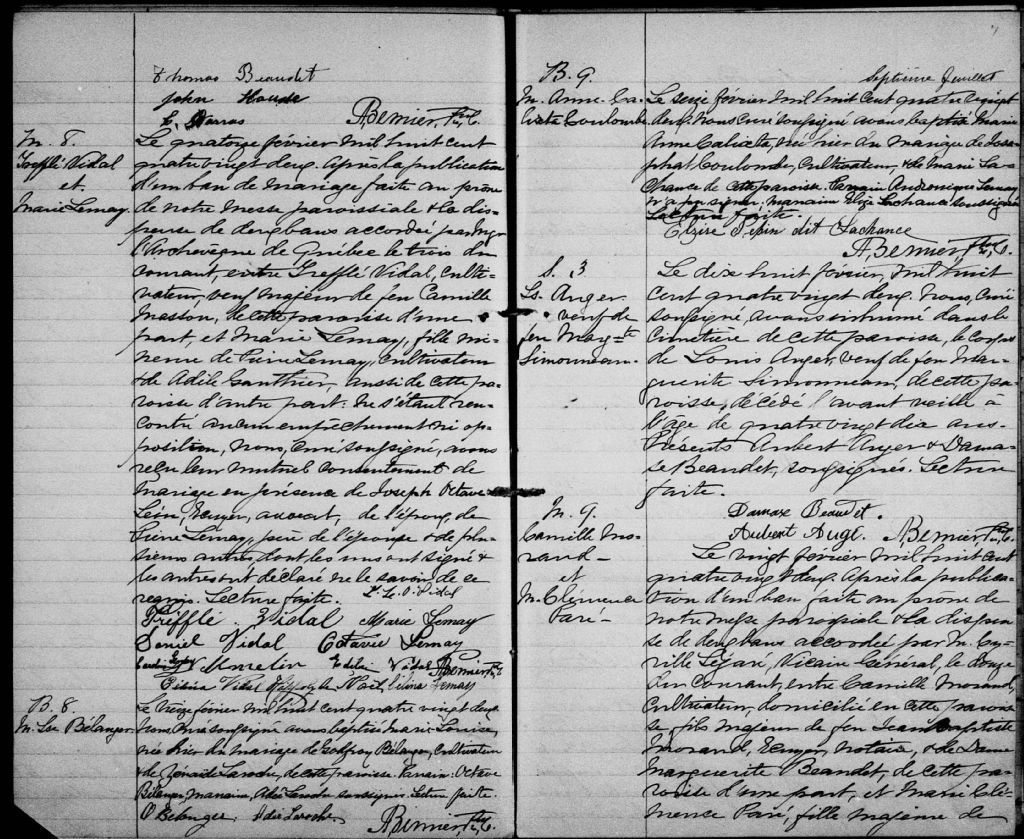 Thomas Beaudet
John Houde
E. Darras
ABernier, Ptre, C.
M. 8.
Trefflé Vidal
et
Marie Lemay.
Le quatorze février mil huit cent
quatre vingt deux. Après la publication
d'un ban de mariage faite au prône
de notre messe paroissiale & la dis-
pense de deux bans accordée par Mgr
l'Archevêque de Québec le trois du
courant, entre Trefflé Vidal, culti-
vateur, veuf majeur de feu Camille
Masson, de cette paroisse d'une
part, et Marie Lemay, fille mi-
neure de Pierre Lemay, cultivateur
& de Adèle Gauthier, aussi de cette pa-
roisse d'autre part: ne s'étant ren-
contré aucun empêchement ni op-
position, nous, curé soussigné, avons
reçu leur mutuel consentement de
mariage en présence de Joseph Octave
Léon, Ecuyer, avocat, de l'époux, de
Pierre Lemay, père de l'épouse & de plu-
sieurs autres, dont les uns ont signé &
les autres ont déclaré ne le savoir de ce
requis. Lecture faite.
Trefflé Vidal Marie Lemay
Daniel Vidal Octavie Lemay
Vidal ABernier, Ptre, C
Vidal Lemay
B. 8.
M. Lse Bélanger
Le treize février mil huit cent quatre vingt deux
nous, curé soussigné avons baptisé Marie Louise,
née hier du mariage de Godfroy Bélanger, cultivateur
& de Zénaïde Laroche, de cette paroisse. Parrain: Octave
Bélanger, marraine, Adée Laroche soussignés. Lecture faite.
O Belanger. Adée Laroche.
ABernier, Ptre, C.
Septième feuillet
B. 9.
M. Anne Ca-
lixta Coulombe
Le seize février mil huit cent quatre vingt
deux, nous curé soussigné avons baptisé Marie
Anne Calixta, née hier du mariage de Josa-
phat Coulombe, cultivateur, & de Marie La-
chance de cette paroisse. Parrain Lemay
n'a pu signer, marraine Elzire Lachance soussignée
Lecture faite.
Elzire Pepin dit Lachance
ABernier, Ptre, C.
S. 3
Ls. Auger
veuf de
feu Margte
Simonneau.
Le dix huit février, mil huit
cent quatre vingt deux. Nous, curé
soussigné, avons inhumé dans le
cimetière de cette paroisse, le corps
de Louis Auger, veuf de feu Mar-
guerite Simonneau, de cette pa-
roisse, décédé l'avant veille à
l'âge de quatre vingt dix ans.
Présents Aubert Auger & Dama-
se Beaudet, soussignés. Lecture
faite.
Damase Beaudet.
Aubert Augé. ABernier, Ptre, C.
M. 9.
Camille Mo-
rand
et
M. Clémence
Paré.
Le vingt février mil huit cent
quatre vingt deux. Après la publica-
tion d'un ban faite au prône de
notre messe paroissiale & la dispen-
se de deux bans accordée par M. Cy-
rille Légaré, Vicaire Général, le douze
du courant, entre Camille Morand,
cultivateur, domicilié en cette parois-
se fils majeur de feu Jean Baptiste
Morand, Ecuyer, notaire, & de Dame
Marguerite Beaudet, de cette pa-
roisse d'une part, et Marie Clé-
mence Paré, fille majeure de